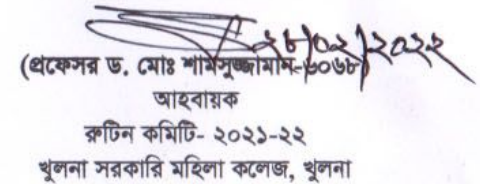 ২৮/০২/২০২২
(প্রফেসর ড. মোঃ শামসুজ্জামান-৬০৬৮)
আহবায়ক
রুটিন কমিটি- ২০২১-২২
খুলনা সরকারি মহিলা কলেজ, খুলনা